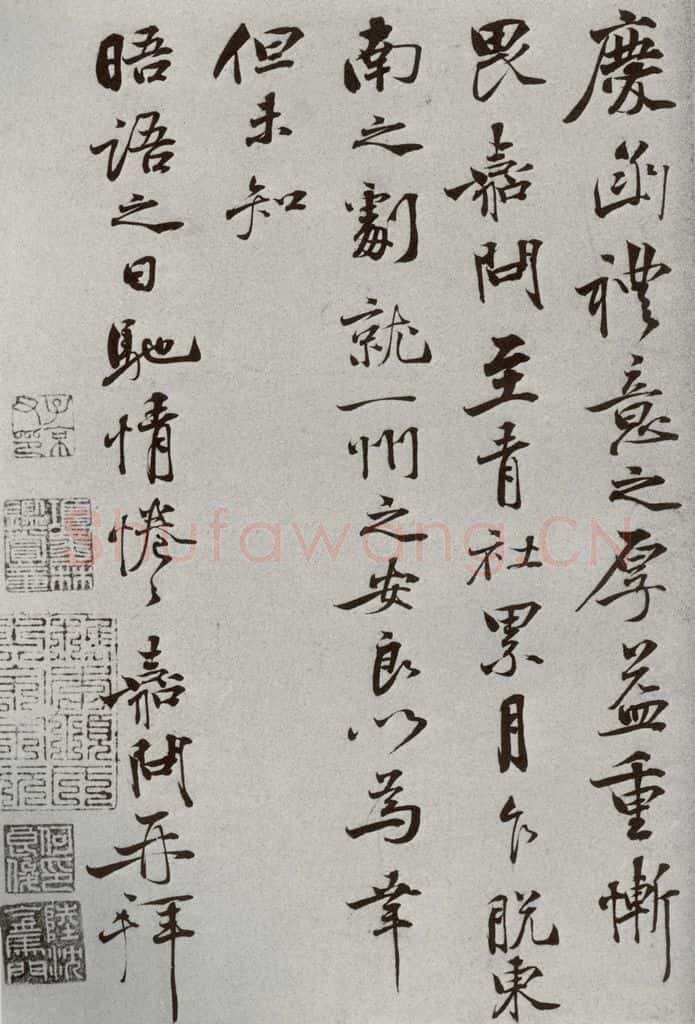 慶函禮意之厚益重慚
畏嘉問至青社累月乍脫東
南之劇就一州之安良以為幸
但未知
晤語之日馳情惓〻嘉問再拜
Shufawang.CN